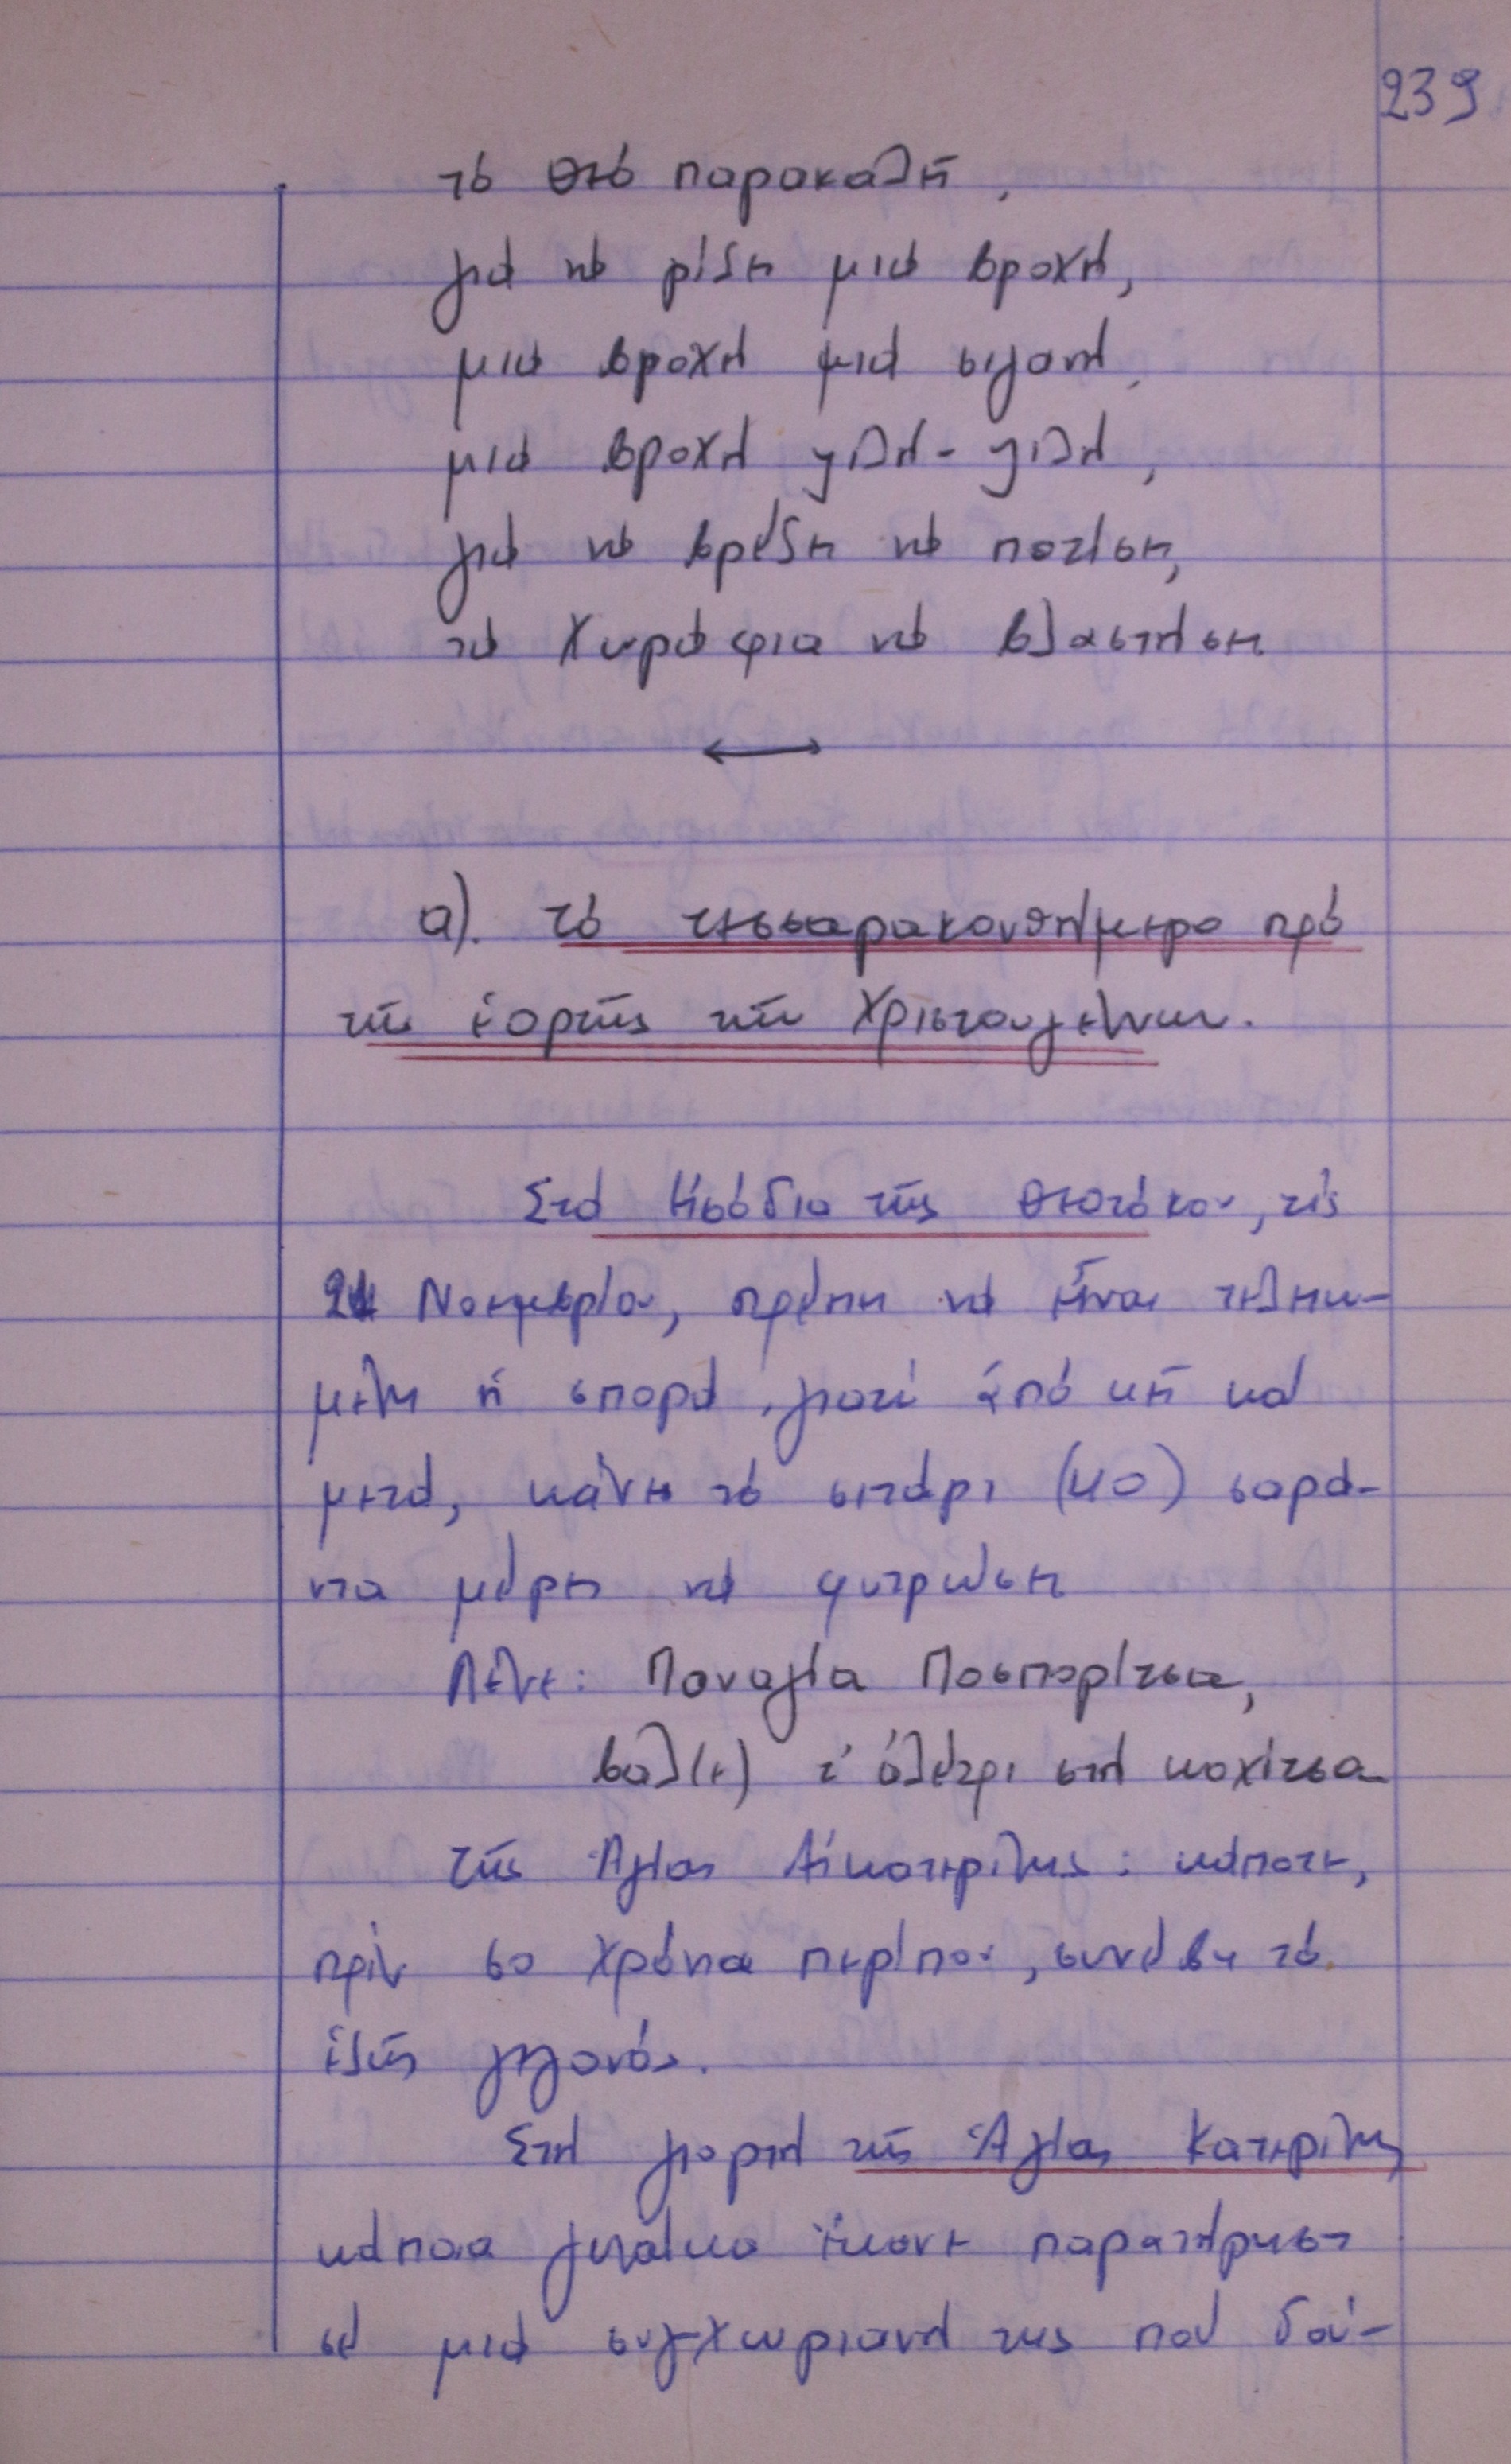 239
τό θεό παρακαλεῖ,
γιά νά ρίξει μιά βροχή,
μιά βροχή μιά σιγανή,
μιά βροχή ψιλή-ψιλή,
γιά νά βρέξει νά ποτίσει,
τά χωράφια νά βλαστήσει
α). τό τεσσαρακονθήμερο πρό
τῆς ἑορτῆς τῶν Χριστουγέννων.
Στά Εἰσόδια τῆς Θεοτόκου, τίς
21 Νοεμβρίου, πρέπει νά εἶναι τελειω-
μένη ἡ σπορά, γιατί ἀπό κεῖ καί
μετά, κάνει τό σιτάρι (40) σαρά-
ντα μέρες νά φυτρώσει
Λένε: Παναγία Ποσπορίτσα,
βάλ(ε) τ' ἀλέτρι στή κοχίτσα
τῆς Ἁγίας Αἰκατερίνης: κάποτε,
πρίν 60 χρόνια περίπου, συνέβη τό
ἑξῆς γεγονός.
Στή γιορτή τῆς Ἁγίας Κατερίνης
κάποια γυναίκα ἔκανε παρατήρηση
σέ μιά συγχωριανή της πού δού-